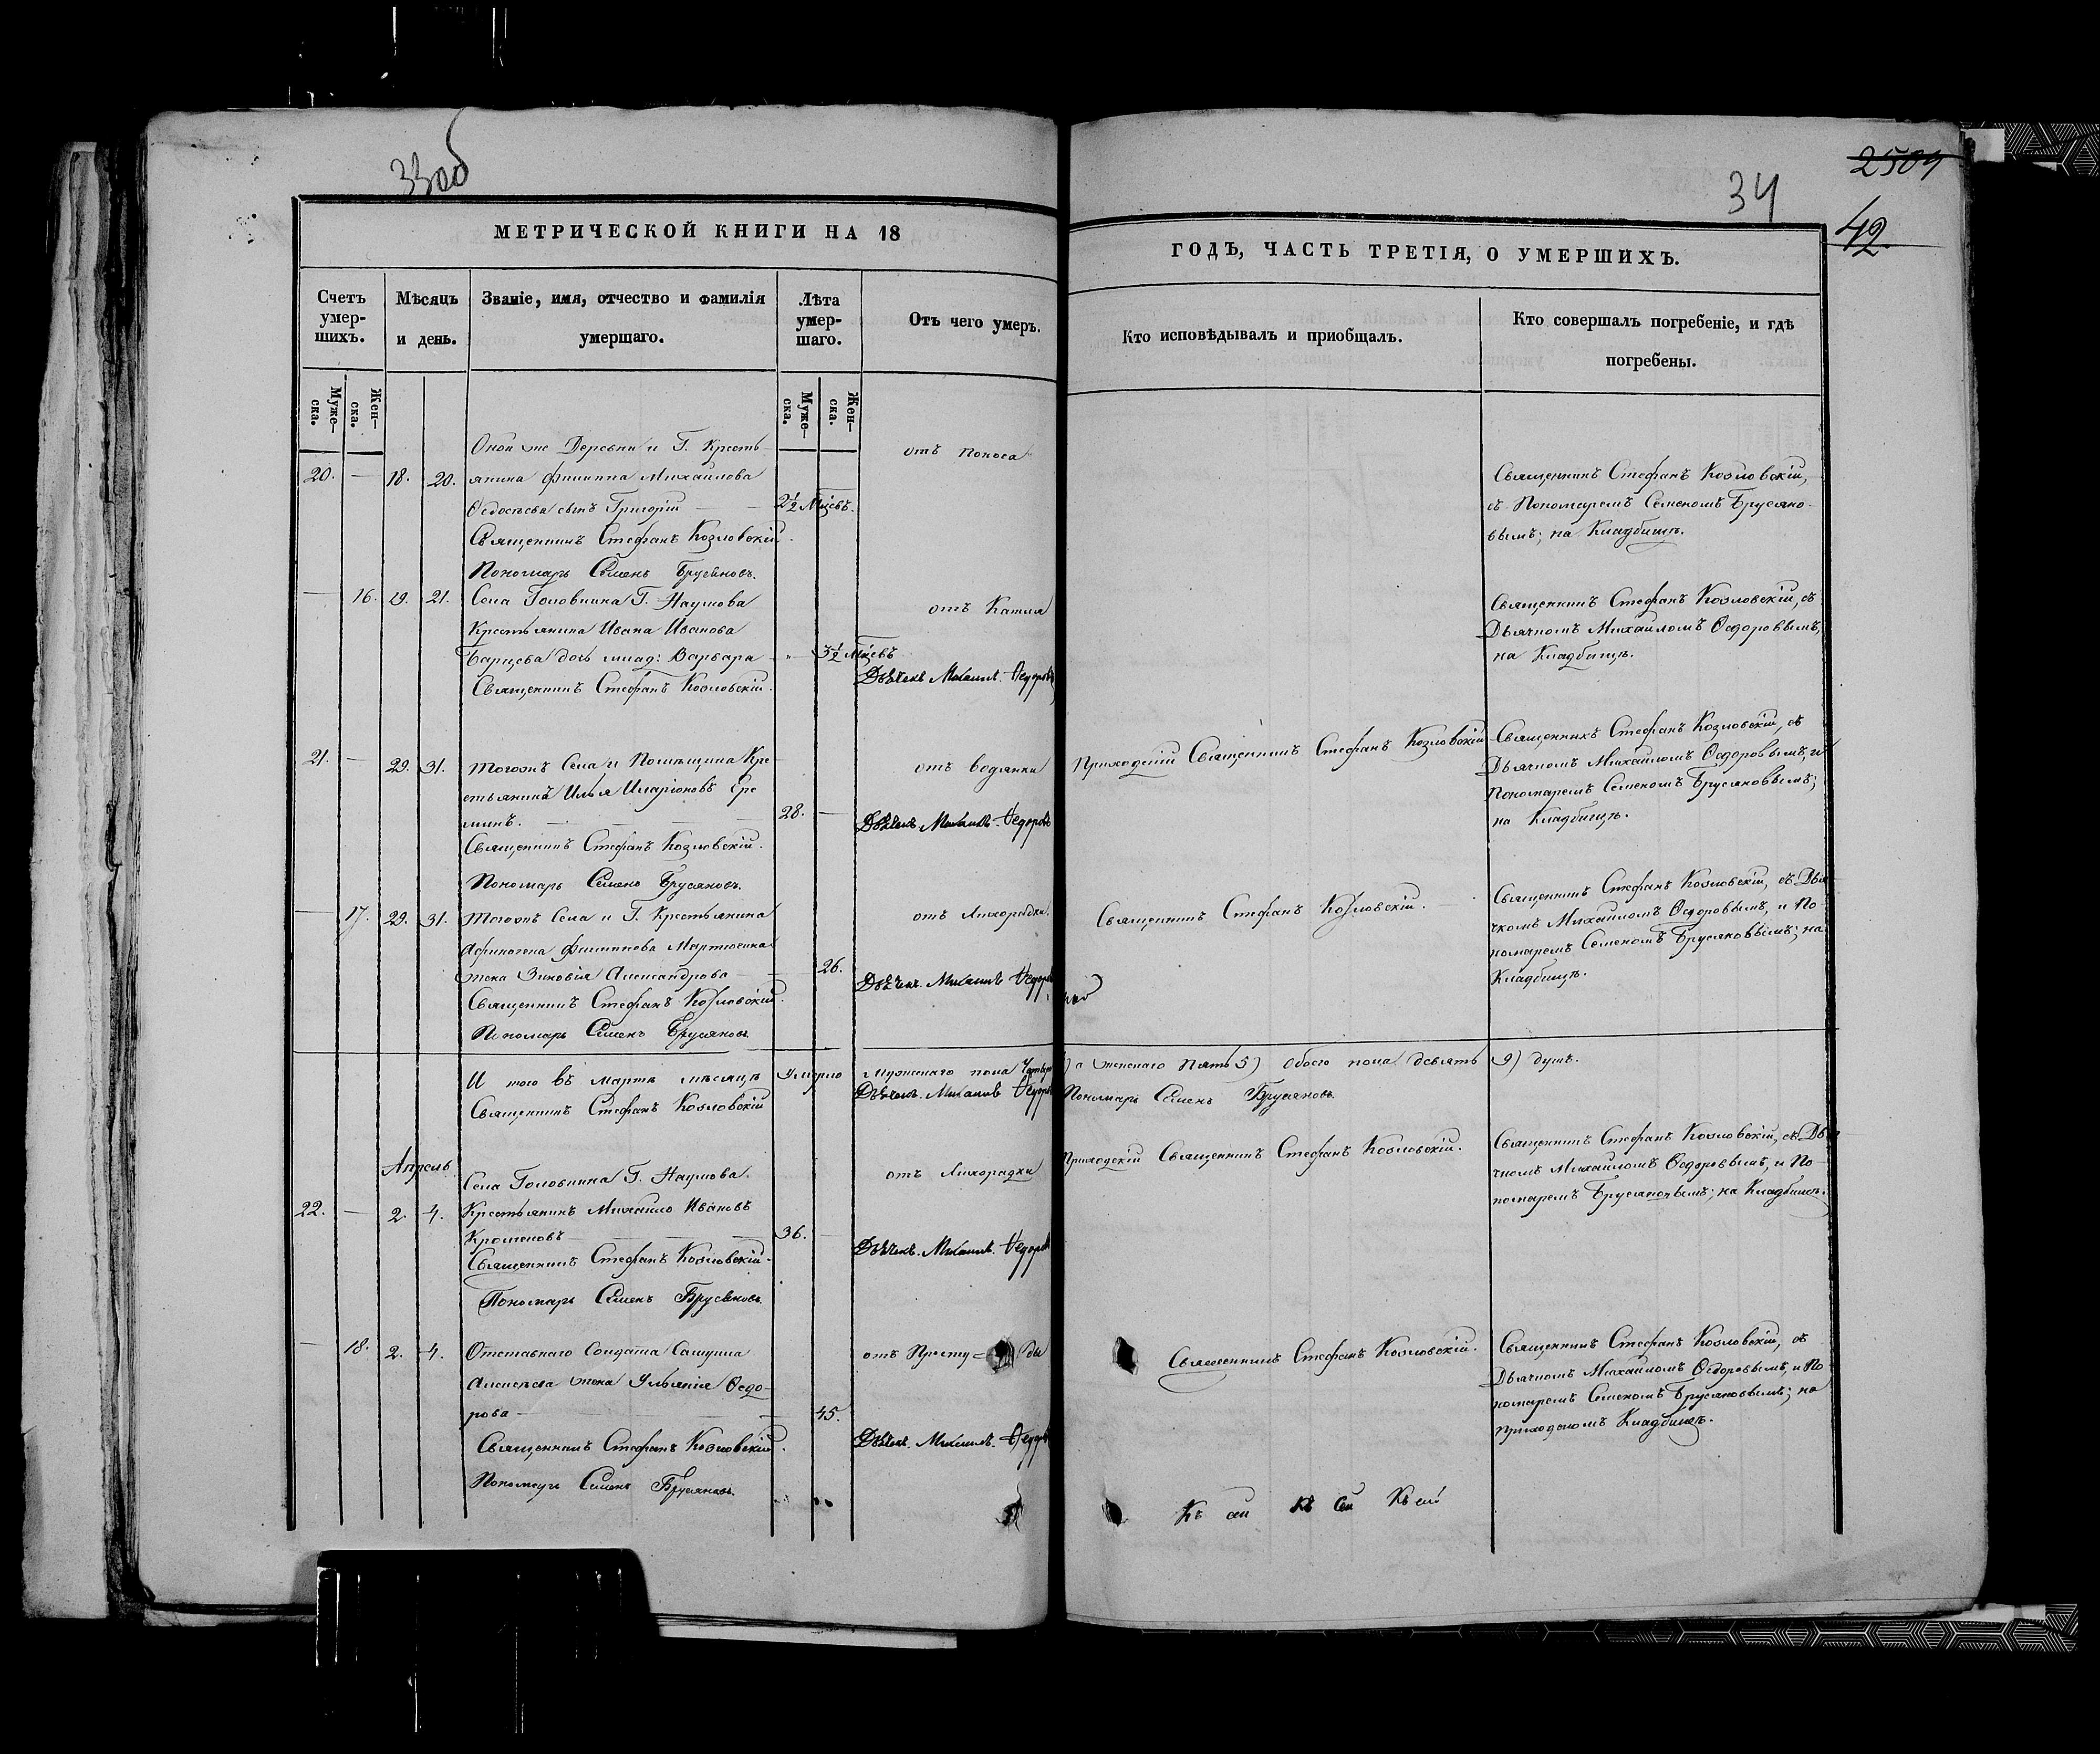 33об
34
2509
42.
МЕТРИЧЕСКОЙ КНИГИ НА 18
ГОДЪ, ЧАСТЬ ТРЕТІЯ, О УМЕРШИХЪ.
Счетъ умер-шихъ.
Мѣсяцъ и день.
Званіе, имя, отчество и фамилія умершаго.
Лѣта умер-шаго.
Отъ чего умеръ.
Кто исповѣдывалъ и приобщалъ.
Кто совершалъ погребеніе, и гдѣ погребены.
Муже-ска.
Жен-ска.
Муже-ска.
Жен-ска.
Оной же Деревни и Г. Кресть-
отъ поноса
20. — 18. 20. янина Филиппа Михайлова
Ѳедосѣева сынъ Григорій — 2½ Мцсвъ.
Священникъ Стефанъ Козловскій.
Пономарь Семенъ Брусяновъ.
Священникъ Стефанъ Козловскій,
съ Пономаремъ Семеномъ Брусяно-
вымъ; на Кладбищѣ.
— 16. 19. 21. Села Головнина Г. Наумова
отъ Кашля
Крестьянина Ивана Иванова
Барцева дочь млад: Варвара — 3½ Мцсвъ
Священникъ Стефанъ Козловскій.
Дьячекъ Михаилъ Ѳедоровъ
Священникъ Стефанъ Козловскій, съ
Дьячкомъ Михаиломъ Ѳедоровымъ,
на Кладбищѣ.
21. — 29. 31. Тогожъ Села и Помѣщика Кре-
отъ водянки
стьянинъ Илья Иларіоновъ Ере-
минъ. — 28. —
Дьячекъ Михаилъ Ѳедоровъ
Священникъ Стефанъ Козловскій.
Пономарь Семенъ Брусяновъ.
Приходскій Священникъ Стефанъ Козловскій
Священникъ Стефанъ Козловскій, съ
Дьячкомъ Михаиломъ Ѳедоровымъ, и
Пономаремъ Семеномъ Брусяновымъ;
на Кладбищѣ.
— 17. 29. 31. Тогожъ Села и Г. Крестьянина
отъ Лихорадки
Афиногена Филиппова Мартюсина
жена Зиновія Александрова — 26.
Дьячекъ Михаилъ Ѳедоровъ
Священникъ Стефанъ Козловскій.
Пономарь Семенъ Брусяновъ.
Священникъ Стефанъ Козловскій.
Священникъ Стефанъ Козловскій, съ Дья-
чкомъ Михаиломъ Ѳедоровымъ, и По-
номаремъ Семеномъ Брусяновымъ; на
Кладбищѣ.
И того въ мартѣ мѣсяцѣ умерло мужескаго пола Четыре а женскаго пять 5) обоего пола девять 9) душъ.
Священникъ Стефанъ Козловскій Дьячекъ Михаилъ Ѳедоровъ Пономарь Семенъ Брусяновъ.
Апрель
Села Головнина Г. Наумова.
отъ Лихорадки
22. — 2. 4. Крестьянинъ Михаило Ивановъ
36.
Священникъ Стефанъ Козловскій.
Дьячекъ Михаилъ Ѳедоровъ
Пономарь Семенъ Брусяновъ.
Приходскій Священникъ Стефанъ Козловскій.
Священникъ Стефанъ Козловскій, съ Дья-
чкомъ Михаиломъ Ѳедоровымъ, и По-
номаремъ Брусяновымъ; на Кладбищѣ.
— 18. 2. 4. Отставнаго Солдата Самуила
отъ Просту=ды
Алексѣева жена Ульянія Ѳедо-
рова — 45.
Дьячекъ Михаилъ Ѳедоровъ
Священникъ Стефанъ Козловскій.
Пономарь Семенъ Брусяновъ.
Священникъ Стефанъ Козловскій.
Священникъ Стефанъ Козловскій, съ
Дьячкомъ Михаиломъ Ѳедоровымъ, и По-
номаремъ Семеномъ Брусяновымъ; на
приходскомъ Кладбищѣ.
Къ сей Къ сей Къ сей